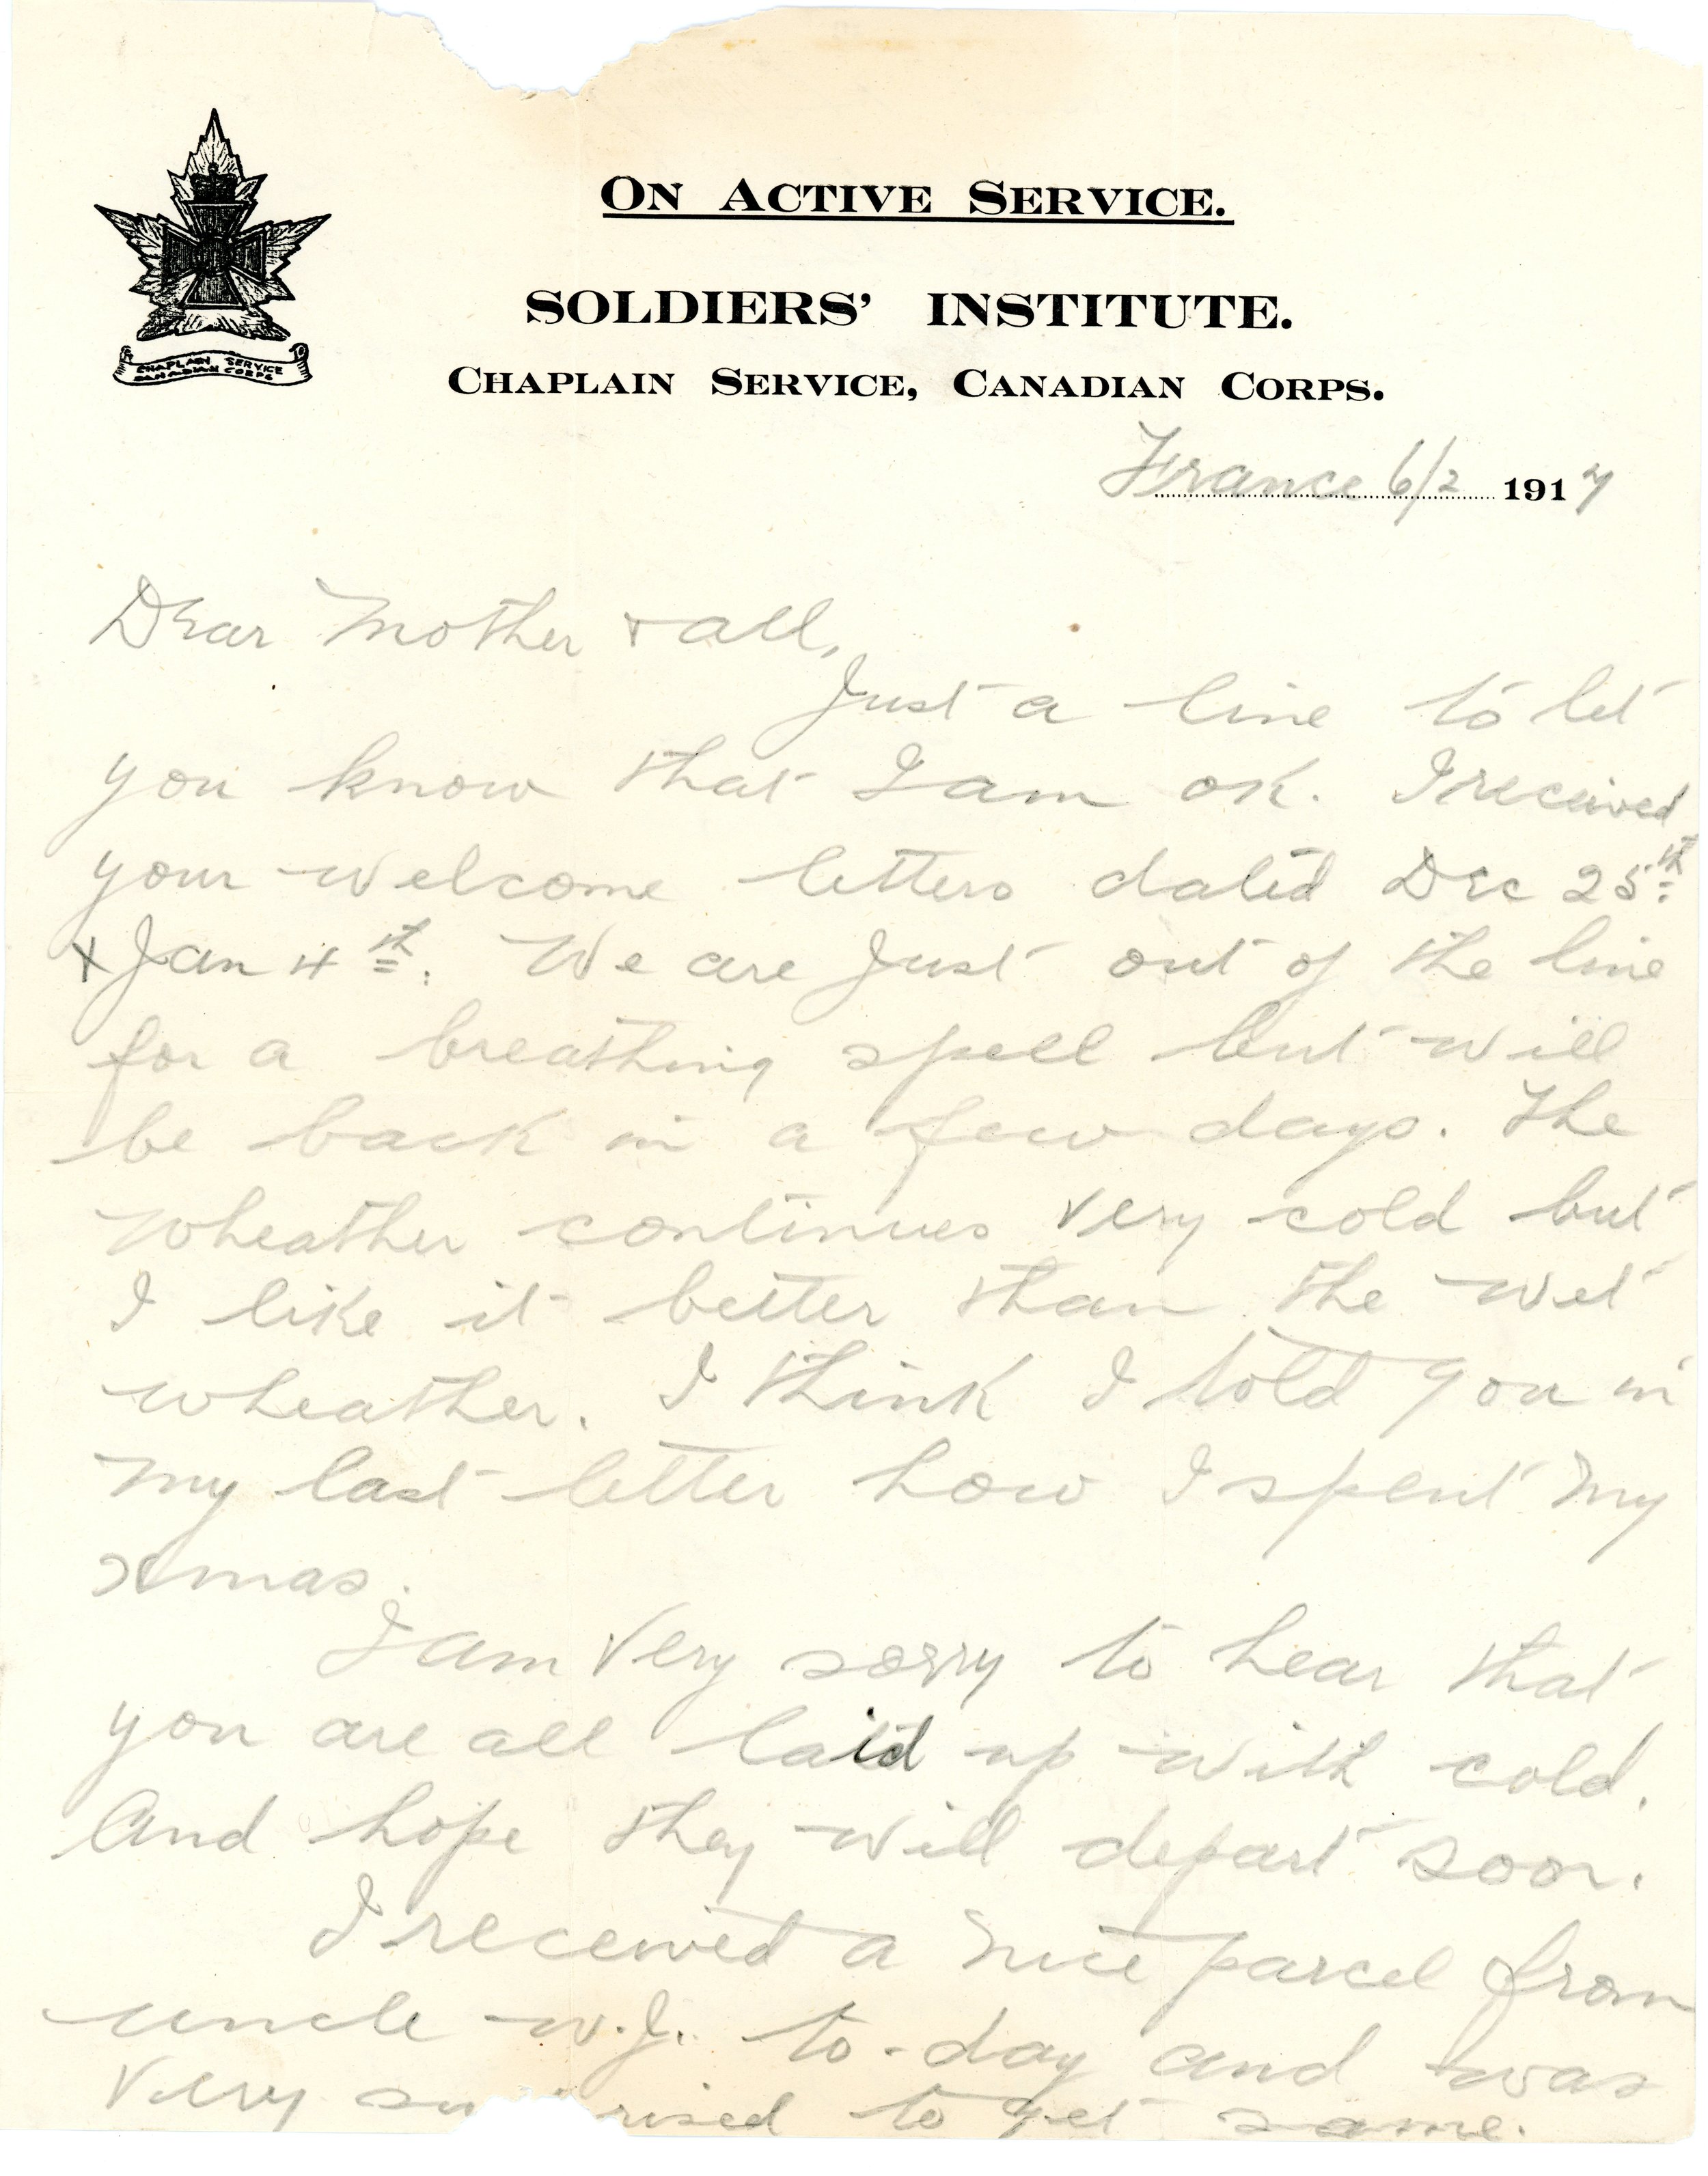 ON ACTIVE SERVICE.
SOLDIERS' INSTITUTE.
CHAPLAIN SERVICE, CANADIAN CORPS.
CHAPLAIN SERVICE
CANADIAN CORPS
France 6/2 1917
Dear Mother & all,
Just a line to let
you know that I am ok. I received
your welcome letters dated Dec 25th
& Jan 4th. We are Just out of the line
for a breathing spell but will
be back in a few days. The
wheather continues very cold but
I like it better than the wet
wheather. I think I told you in
my last letter how I spent my
xmas.
I am very sorry to hear that
you are all laid up with cold.
And hope they will depart soon.
I received a nice parcel from
uncle W.J. to-day and was
very su rised to get same.